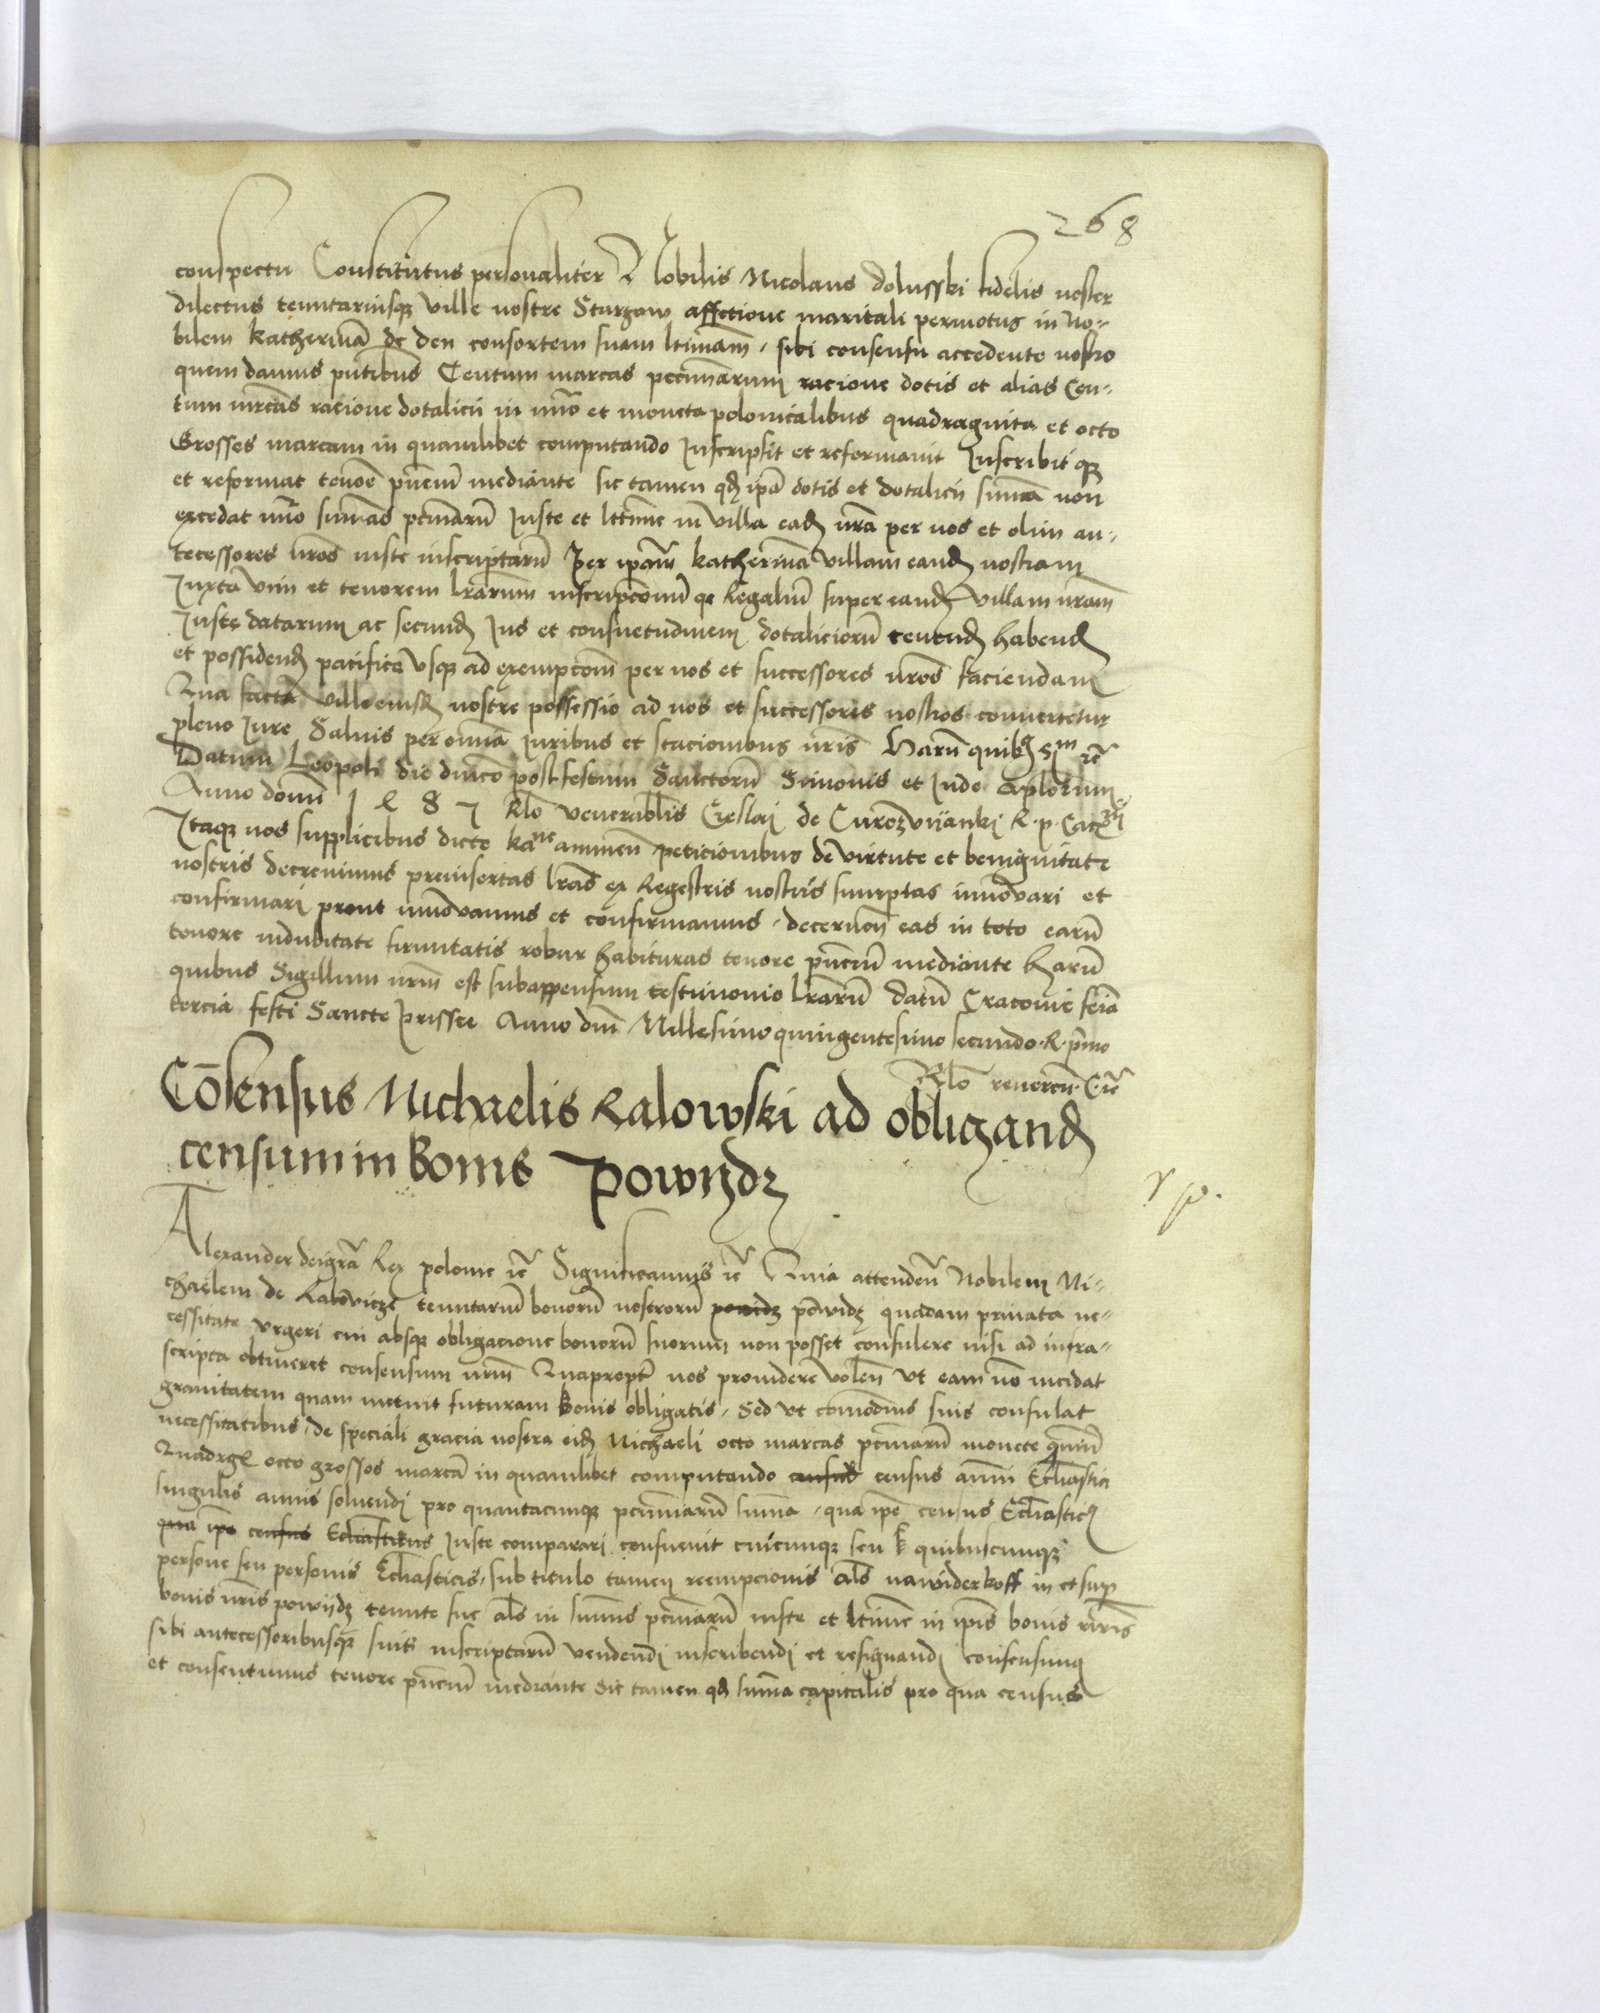 268
conspectu Constitutus personaliter Nobilis Nicolaus dolusski fidelis noster
dilectus tenutariusqz ville nostre Sturgow affectione maritali permotus in no-
bilem katherinā de den consortem suam ltimam, sibi consensu accedente nostro
quem damus pntibus Centum marcas pecuniarum racione dotis et alias Cen-
tum mrcas racione dotalicii in nuo et moneta polonicalibus quadraginta et octo
Grosses marcam in quamlibet computando Inscripsit et reformavit Inscribit qz
et reformat tenoe pncium mediante sic tamen qd ipa dotis et dotalicii suma non
excedat nuo sumas pcuniaru Iuste et lttime in villa eadē nra per nos et olim an-
tecessores nros iuste inscriptarū Per ipam katherinā villam eandē nostram
Iuxta vim et tenorem lrarum inscripcionū qe Regaliū super eandē villam nram
Iuste datarum ac secundū Ius et consuetudinem dotaliciorū tenendē habendē
et possidendē pacifice vsqz ad exempcom per nos et successores nros faciendam
Qua facta ville eiusdē nostre possessio ad nos et successores nostros convertetur
pleno Iure Salvis per omia iuribus et stacionibus nris Harū quibus Sm etc
Datum Leopoli die dnico post festum Sanctorū Simonis et Iude aplorum
Anno domi 1487 Rlo venerablis Creslai de Curozvanki R. p. Canzly
Itaqz nos supplicibus dicte kane ammen peticionibus de virtute et benignitate
nostris decrevimus preinsertas lras ex Regestris nostris sumptas innovari et
confirmari prout innovamus et confirmamus, decernen eas in toto earū
tenore indubitate firmitatis robur habituras tenore pncium mediante harū
quibus Sigillum nrm est subappensum testimonio lrarū datū Cracovie feia
tercia festi Sancte Prissce Anno dni Millesimo quingentesimo secundo R. pmo
Rlo reveren. C. etc
Cōsensus Michaelis Ralowski ad obligandē
censum in bonis Powydz
r p.
Alexander dei gra Rex polonie etc Significamus etc Quia attenden Nobilem Mi-
chaelem de Ralowicze tenutariū bonorū nostrorū powidz powidz quadam privata ne-
cessitate vrgeri cui absqz obligacione bonorū suorum non posset consulere nisi ad infra-
scripta obtineret consensum nrm Quapropt nos providere volen vt eam no incidat
gravitatem quam metuit futuram bonis obligatis, Sed vt comodius suis consulat
necessitatibus, de speciali gracia nostra eidē Michaeli octo marcas pcuniarū monete
Quadrgta octo grossos marca in quamlibet computando census census annui Ecclastici
singulis annis solvendi pro quantacunqz pcuniarū suma, qua ipe census Ecclastic
qua ipe census Ecclasticus Iuste comparari consuevit cuicunqz seu quibuscunqz
persone seu personis Ecclasticis, sub titulo tamen reempcionis als nawiderkoff in et sup
bonis nris powydz tenute sue als in sumis pcuniarū iuste et ltime in ipis bonis nris
sibi antecessoribusqz suis inscriptarū vendendi inscribendi et resignandi consensum
et consentimus tenore pncium mediante Sic tamen qd suma capitalis pro qua census